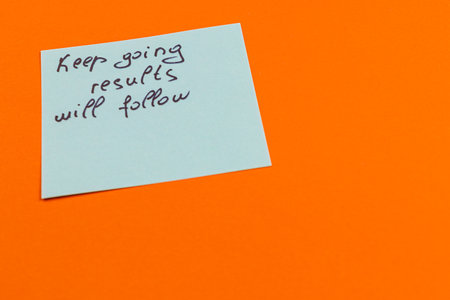 Keep going
results
will follow